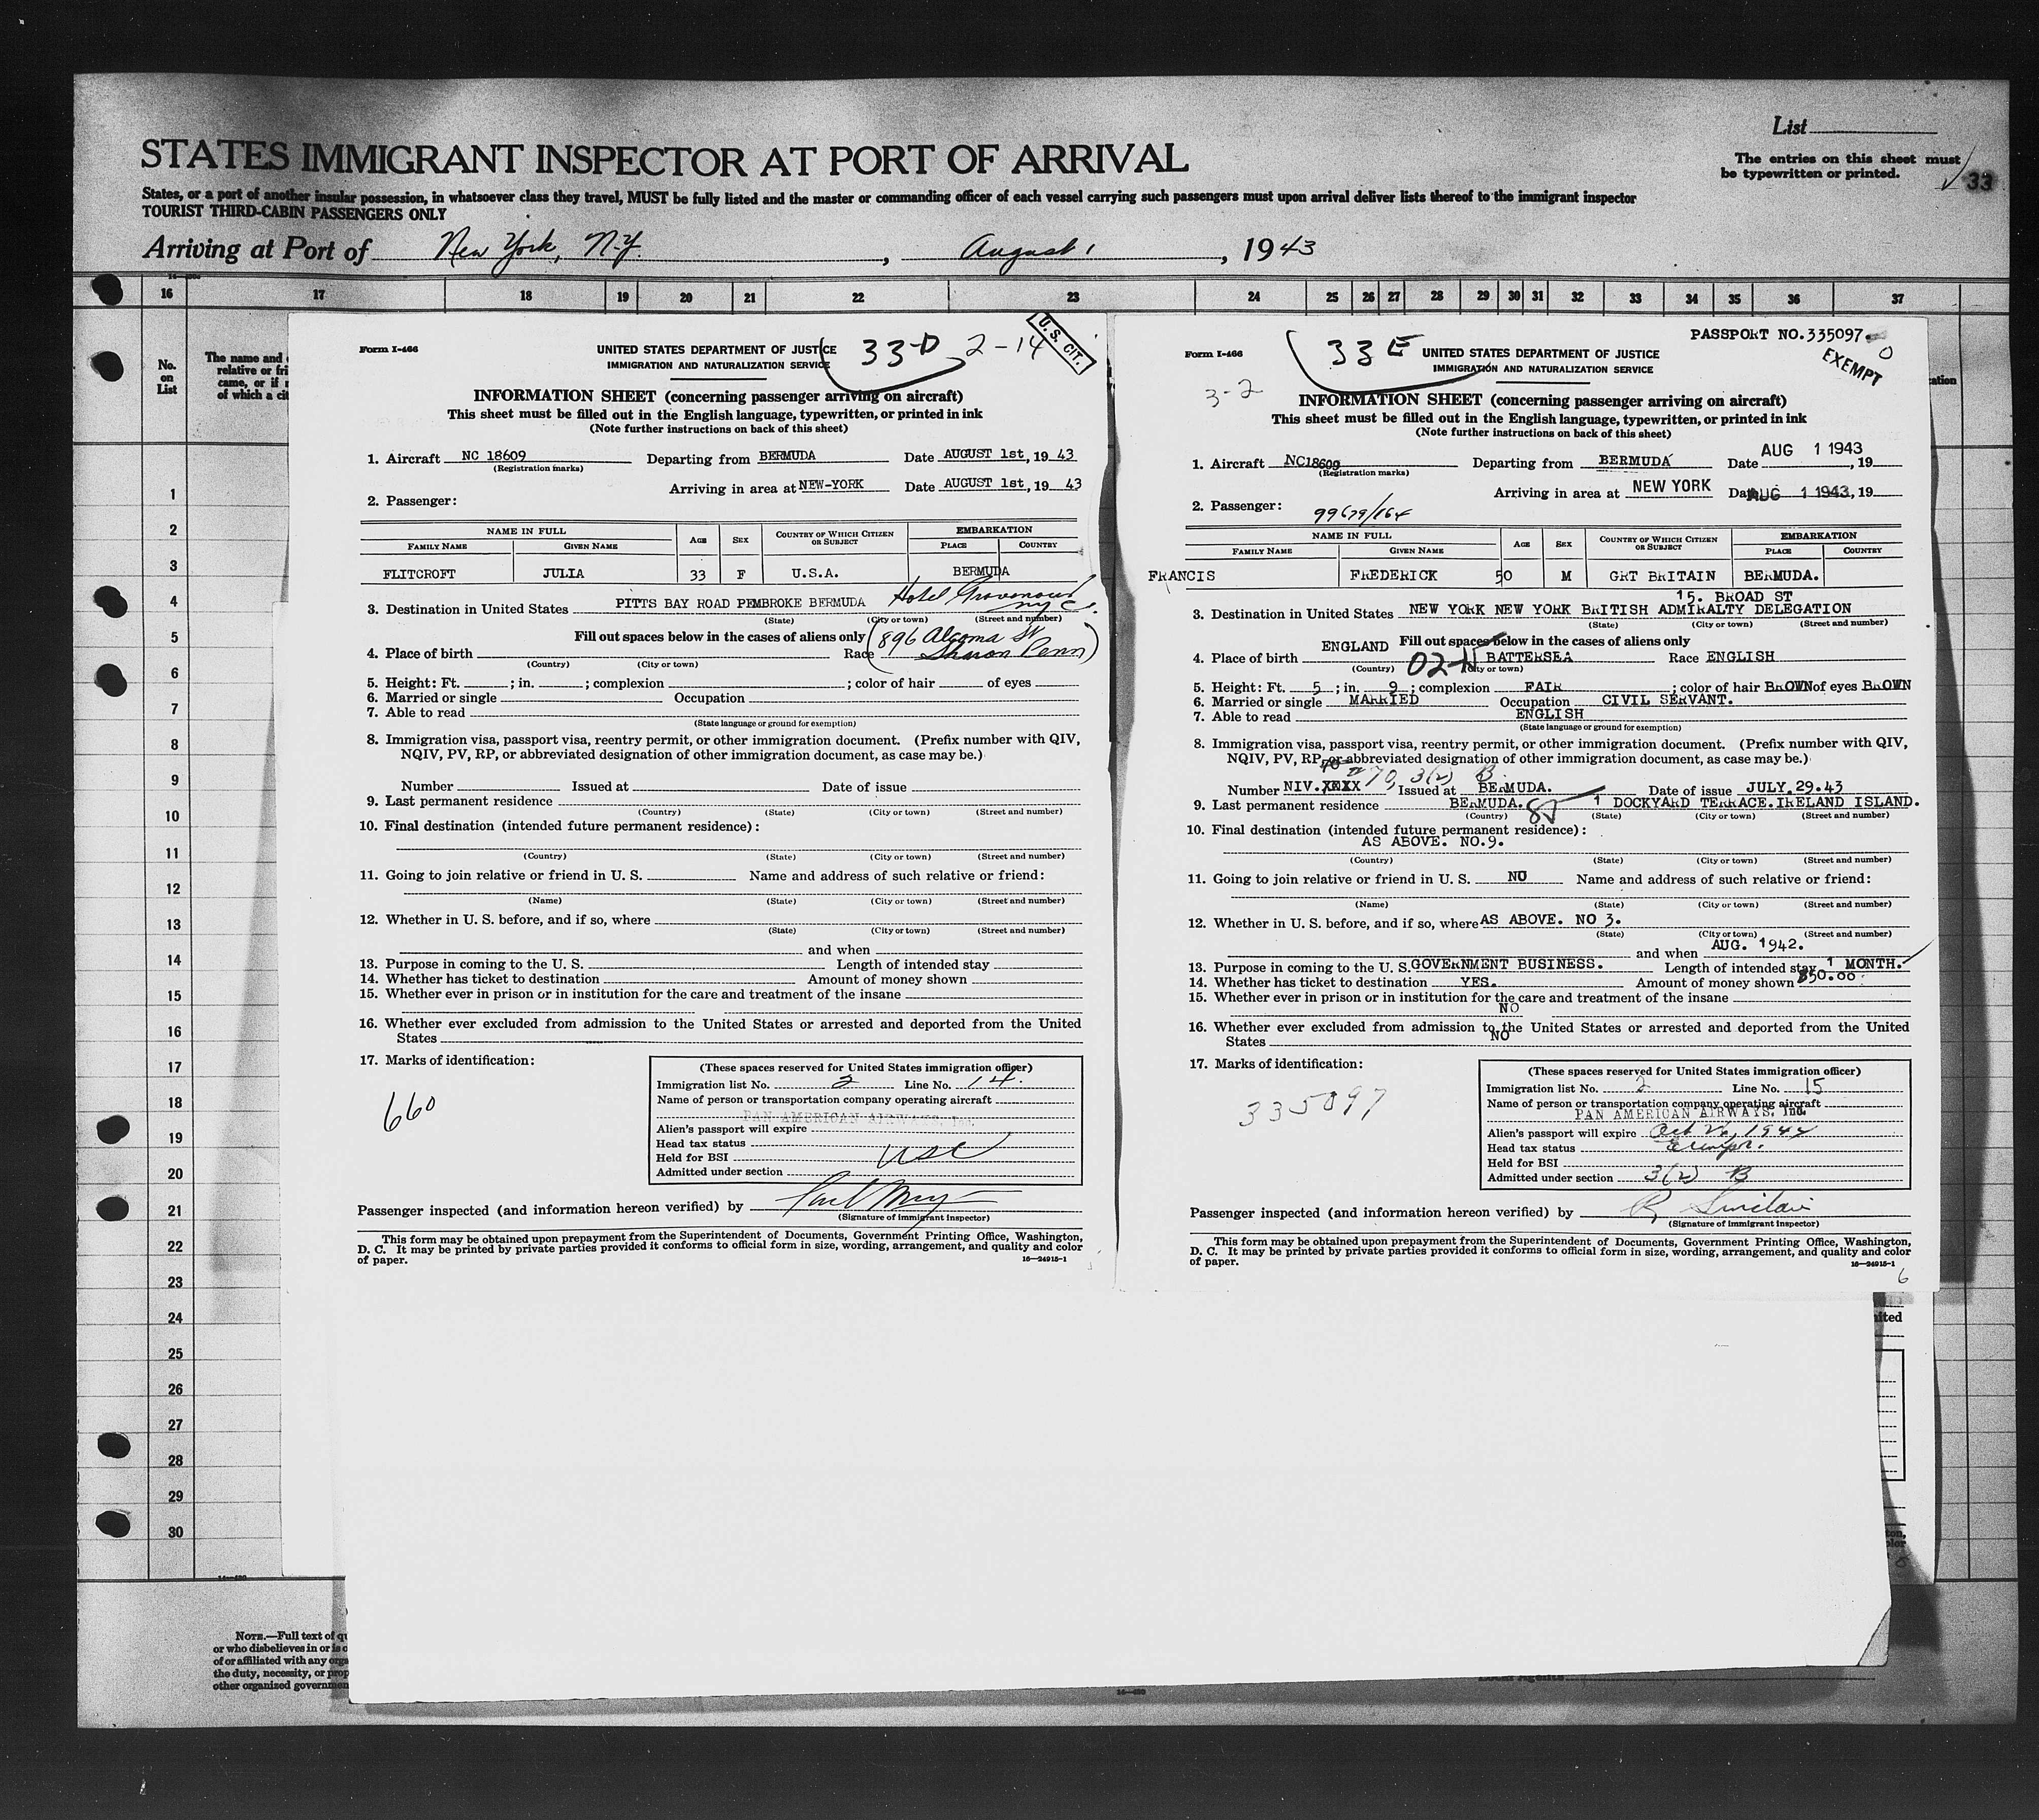 List
STATES IMMIGRANT INSPECTOR AT PORT OF ARRIVAL
The entries on this sheet must
be typewritten or printed.
33
States, or a port of another insular possession, in whatsoever class they travel, MUST be fully listed and the master or commanding officer of each vessel carrying such passengers must upon arrival deliver lists thereof to the immigrant inspector
TOURIST THIRD-CABIN PASSENGERS ONLY
Arriving at Port of New York, N.Y. , August 1 , 1943
16 17 18 19 20 21 22 23 24 25 26 27 28 29 30 31 32 33 34 35 36 37
No.
on
List
The name and
relative or fri
came, or if
of which a cit
1
2
3
4
5
6
7
8
9
10
11
12
13
14
15
16
17
18
19
20
21
22
23
24
25
26
27
28
29
30
Form I-466
33-D 2-14
U.S. CIT.
UNITED STATES DEPARTMENT OF JUSTICE
IMMIGRATION AND NATURALIZATION SERVICE
INFORMATION SHEET (concerning passenger arriving on aircraft)
This sheet must be filled out in the English language, typewritten, or printed in ink
(Note further instructions on back of this sheet)
1. Aircraft NC 18609 Departing from BERMUDA Date AUGUST 1st, 19 43
(Registration marks)
Arriving in area at NEW-YORK Date AUGUST 1st, 19 43
2. Passenger:
NAME IN FULL AGE SEX COUNTRY OF WHICH CITIZEN OR SUBJECT EMBARKATION
FAMILY NAME GIVEN NAME PLACE COUNTRY
FLITCROFT JULIA 33 F U.S.A. BERMUDA
3. Destination in United States PITTS BAY ROAD PEMBROKE BERMUDA Hotel
NYC.
(State) (City or town) (Street and number)
Fill out spaces below in the cases of aliens only (896 Algoma St
4. Place of birth Race Sharon Penn)
(Country) (City or town)
5. Height: Ft. ; in. ; complexion ; color of hair of eyes
6. Married or single Occupation
7. Able to read
(State language or ground for exemption)
8. Immigration visa, passport visa, reentry permit, or other immigration document. (Prefix number with QIV,
NQIV, PV, RP, or abbreviated designation of other immigration document, as case may be.)
Number Issued at Date of issue
9. Last permanent residence
(Country) (State) (City or town) (Street and number)
10. Final destination (intended future permanent residence):
(Country) (State) (City or town) (Street and number)
11. Going to join relative or friend in U. S. Name and address of such relative or friend:
(Name) (State) (City or town) (Street and number)
12. Whether in U. S. before, and if so, where
(State) (City or town) (Street and number)
and when
13. Purpose in coming to the U. S. Length of intended stay
14. Whether has ticket to destination Amount of money shown
15. Whether ever in prison or in institution for the care and treatment of the insane
16. Whether ever excluded from admission to the United States or arrested and deported from the United
States
17. Marks of identification:
660
(These spaces reserved for United States immigration officer)
Immigration list No. 2 Line No. 14.
Name of person or transportation company operating aircraft
PAN AMERICAN AIRWAYS, Inc.
Alien's passport will expire
Head tax status
Held for BSI USC
Admitted under section
Passenger inspected (and information hereon verified) by
(Signature of immigrant inspector)
This form may be obtained upon prepayment from the Superintendent of Documents, Government Printing Office, Washington,
D. C. It may be printed by private parties provided it conforms to official form in size, wording, arrangement, and quality and color
of paper. 16—24915-1
PASSPORT NO.335097.
Form I-466
33 E
EXEMPT
3-2
UNITED STATES DEPARTMENT OF JUSTICE
IMMIGRATION AND NATURALIZATION SERVICE
INFORMATION SHEET (concerning passenger arriving on aircraft)
This sheet must be filled out in the English language, typewritten, or printed in ink
(Note further instructions on back of this sheet)
1. Aircraft NC18609 Departing from BERMUDA Date AUG 1 1943, 19
(Registration marks)
Arriving in area at NEW YORK Date AUG 1 1943, 19
2. Passenger: 99679/164
NAME IN FULL AGE SEX COUNTRY OF WHICH CITIZEN OR SUBJECT EMBARKATION
FAMILY NAME GIVEN NAME PLACE COUNTRY
FRANCIS FREDERICK 50 M GRT BRITAIN BERMUDA.
15. BROAD ST
3. Destination in United States NEW YORK NEW YORK BRITISH ADMIRALTY DELEGATION
(State) (City or town) (Street and number)
Fill out spaces below in the cases of aliens only
4. Place of birth ENGLAND BATTERSEA Race ENGLISH
(Country) (City or town)
5. Height: Ft. 5 ; in. 9 ; complexion FAIR ; color of hair BROWN of eyes BROWN
6. Married or single MARRIED Occupation CIVIL SERVANT.
7. Able to read ENGLISH
(State language or ground for exemption)
8. Immigration visa, passport visa, reentry permit, or other immigration document. (Prefix number with QIV,
NQIV, PV, RP, or abbreviated designation of other immigration document, as case may be.)
70, 3(2) B
Number NIV. Issued at BERMUDA. Date of issue JULY.29.43
9. Last permanent residence BERMUDA. 1 DOCKYARD TERRACE.IRELAND ISLAND.
(Country) (State) (City or town) (Street and number)
10. Final destination (intended future permanent residence):
AS ABOVE. NO.9.
(Country) (State) (City or town) (Street and number)
11. Going to join relative or friend in U. S. NO Name and address of such relative or friend:
(Name) (State) (City or town) (Street and number)
12. Whether in U. S. before, and if so, where AS ABOVE. NO 3.
(State) (City or town) (Street and number)
and when AUG. 1942.
13. Purpose in coming to the U. S. GOVERNMENT BUSINESS. Length of intended stay 1 MONTH.
14. Whether has ticket to destination YES. Amount of money shown $50.00
15. Whether ever in prison or in institution for the care and treatment of the insane
NO
16. Whether ever excluded from admission to the United States or arrested and deported from the United
States NO
17. Marks of identification:
335097
(These spaces reserved for United States immigration officer)
Immigration list No. 2 Line No. 15
Name of person or transportation company operating aircraft
PAN AMERICAN AIRWAYS, Inc.
Alien's passport will expire Oct 26, 1944
Head tax status Exempt.
Held for BSI
Admitted under section 3(2) B
Passenger inspected (and information hereon verified) by R Sinclair
(Signature of immigrant inspector)
This form may be obtained upon prepayment from the Superintendent of Documents, Government Printing Office, Washington,
D. C. It may be printed by private parties provided it conforms to official form in size, wording, arrangement, and quality and color
of paper. 16—24915-1
6
NOTE.—Full text of qu
or who disbelieves in or is o
of or affiliated with any orga
the duty, necessity, or prop
other organized governmen